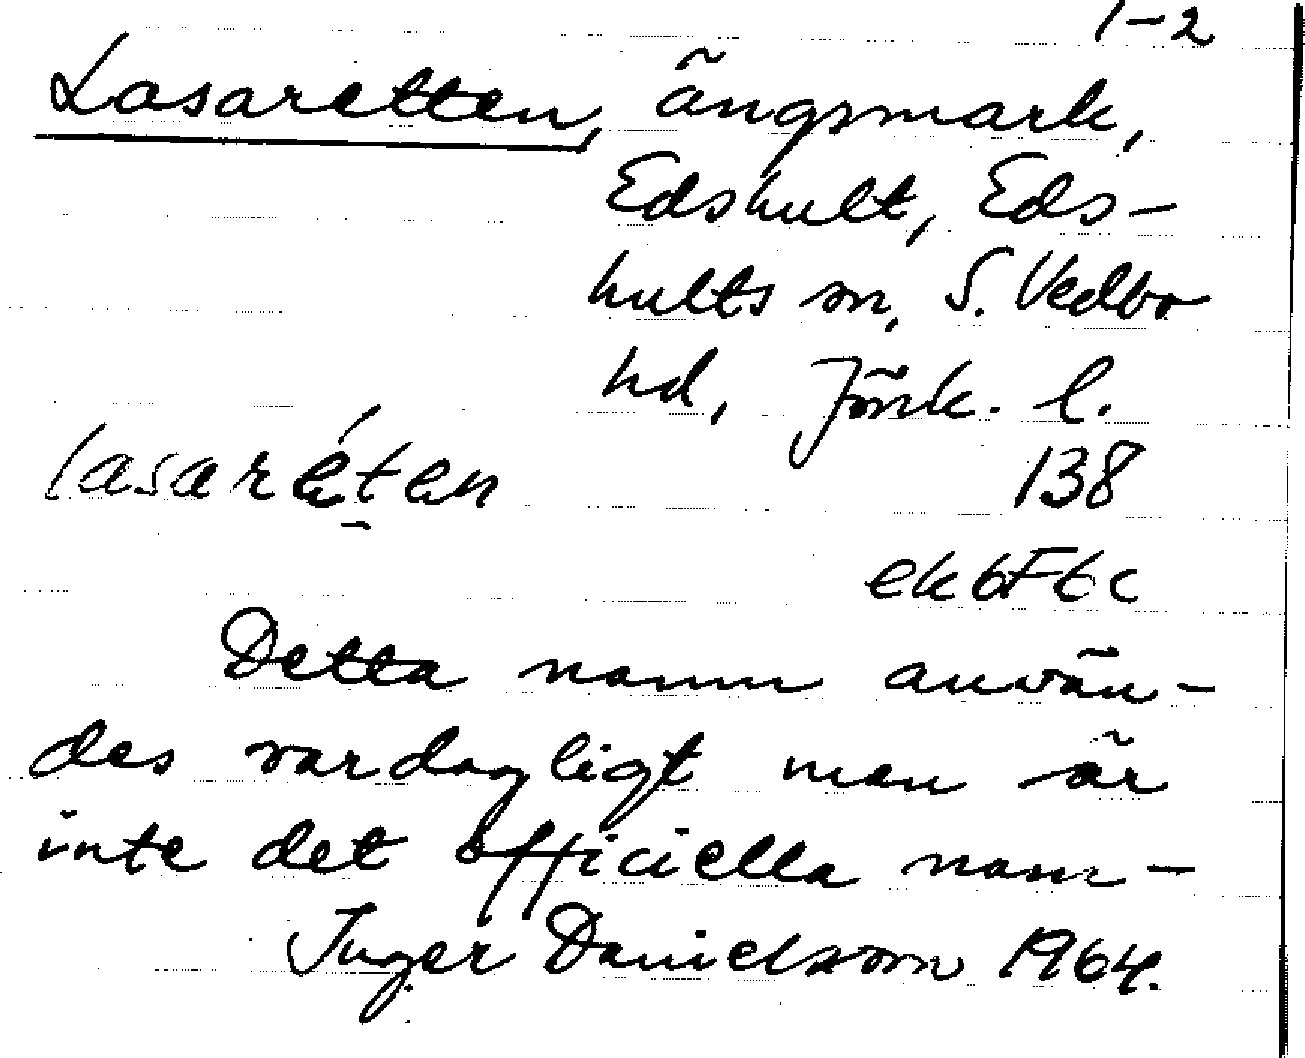 1-2
Lasaretten, ängsmark,
Edshult, Eds-
hults sn, S. Vedbo
hd, Jönk. l.
lasaréten
138
ek 6F6c
Detta namn använ-
des vardagligt men är
inte det officiella nam-
Inger Danielsson 1964.